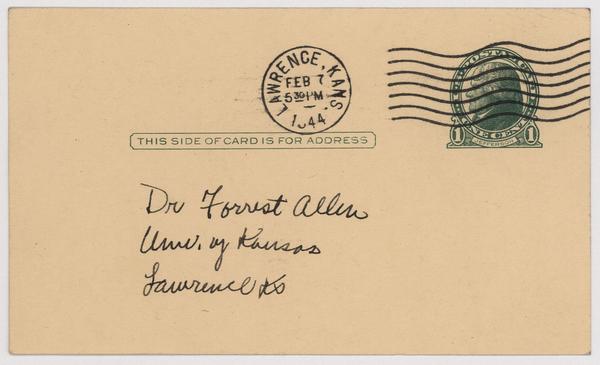 LAWRENCE, KANS.
FEB 7
5 30 PM
1944
U.S. POSTAGE
1 ONE CENT 1
JEFFERSON
THIS SIDE OF CARD IS FOR ADDRESS
Dr Forrest Allen
Univ. of Kansas
Lawrence Ks